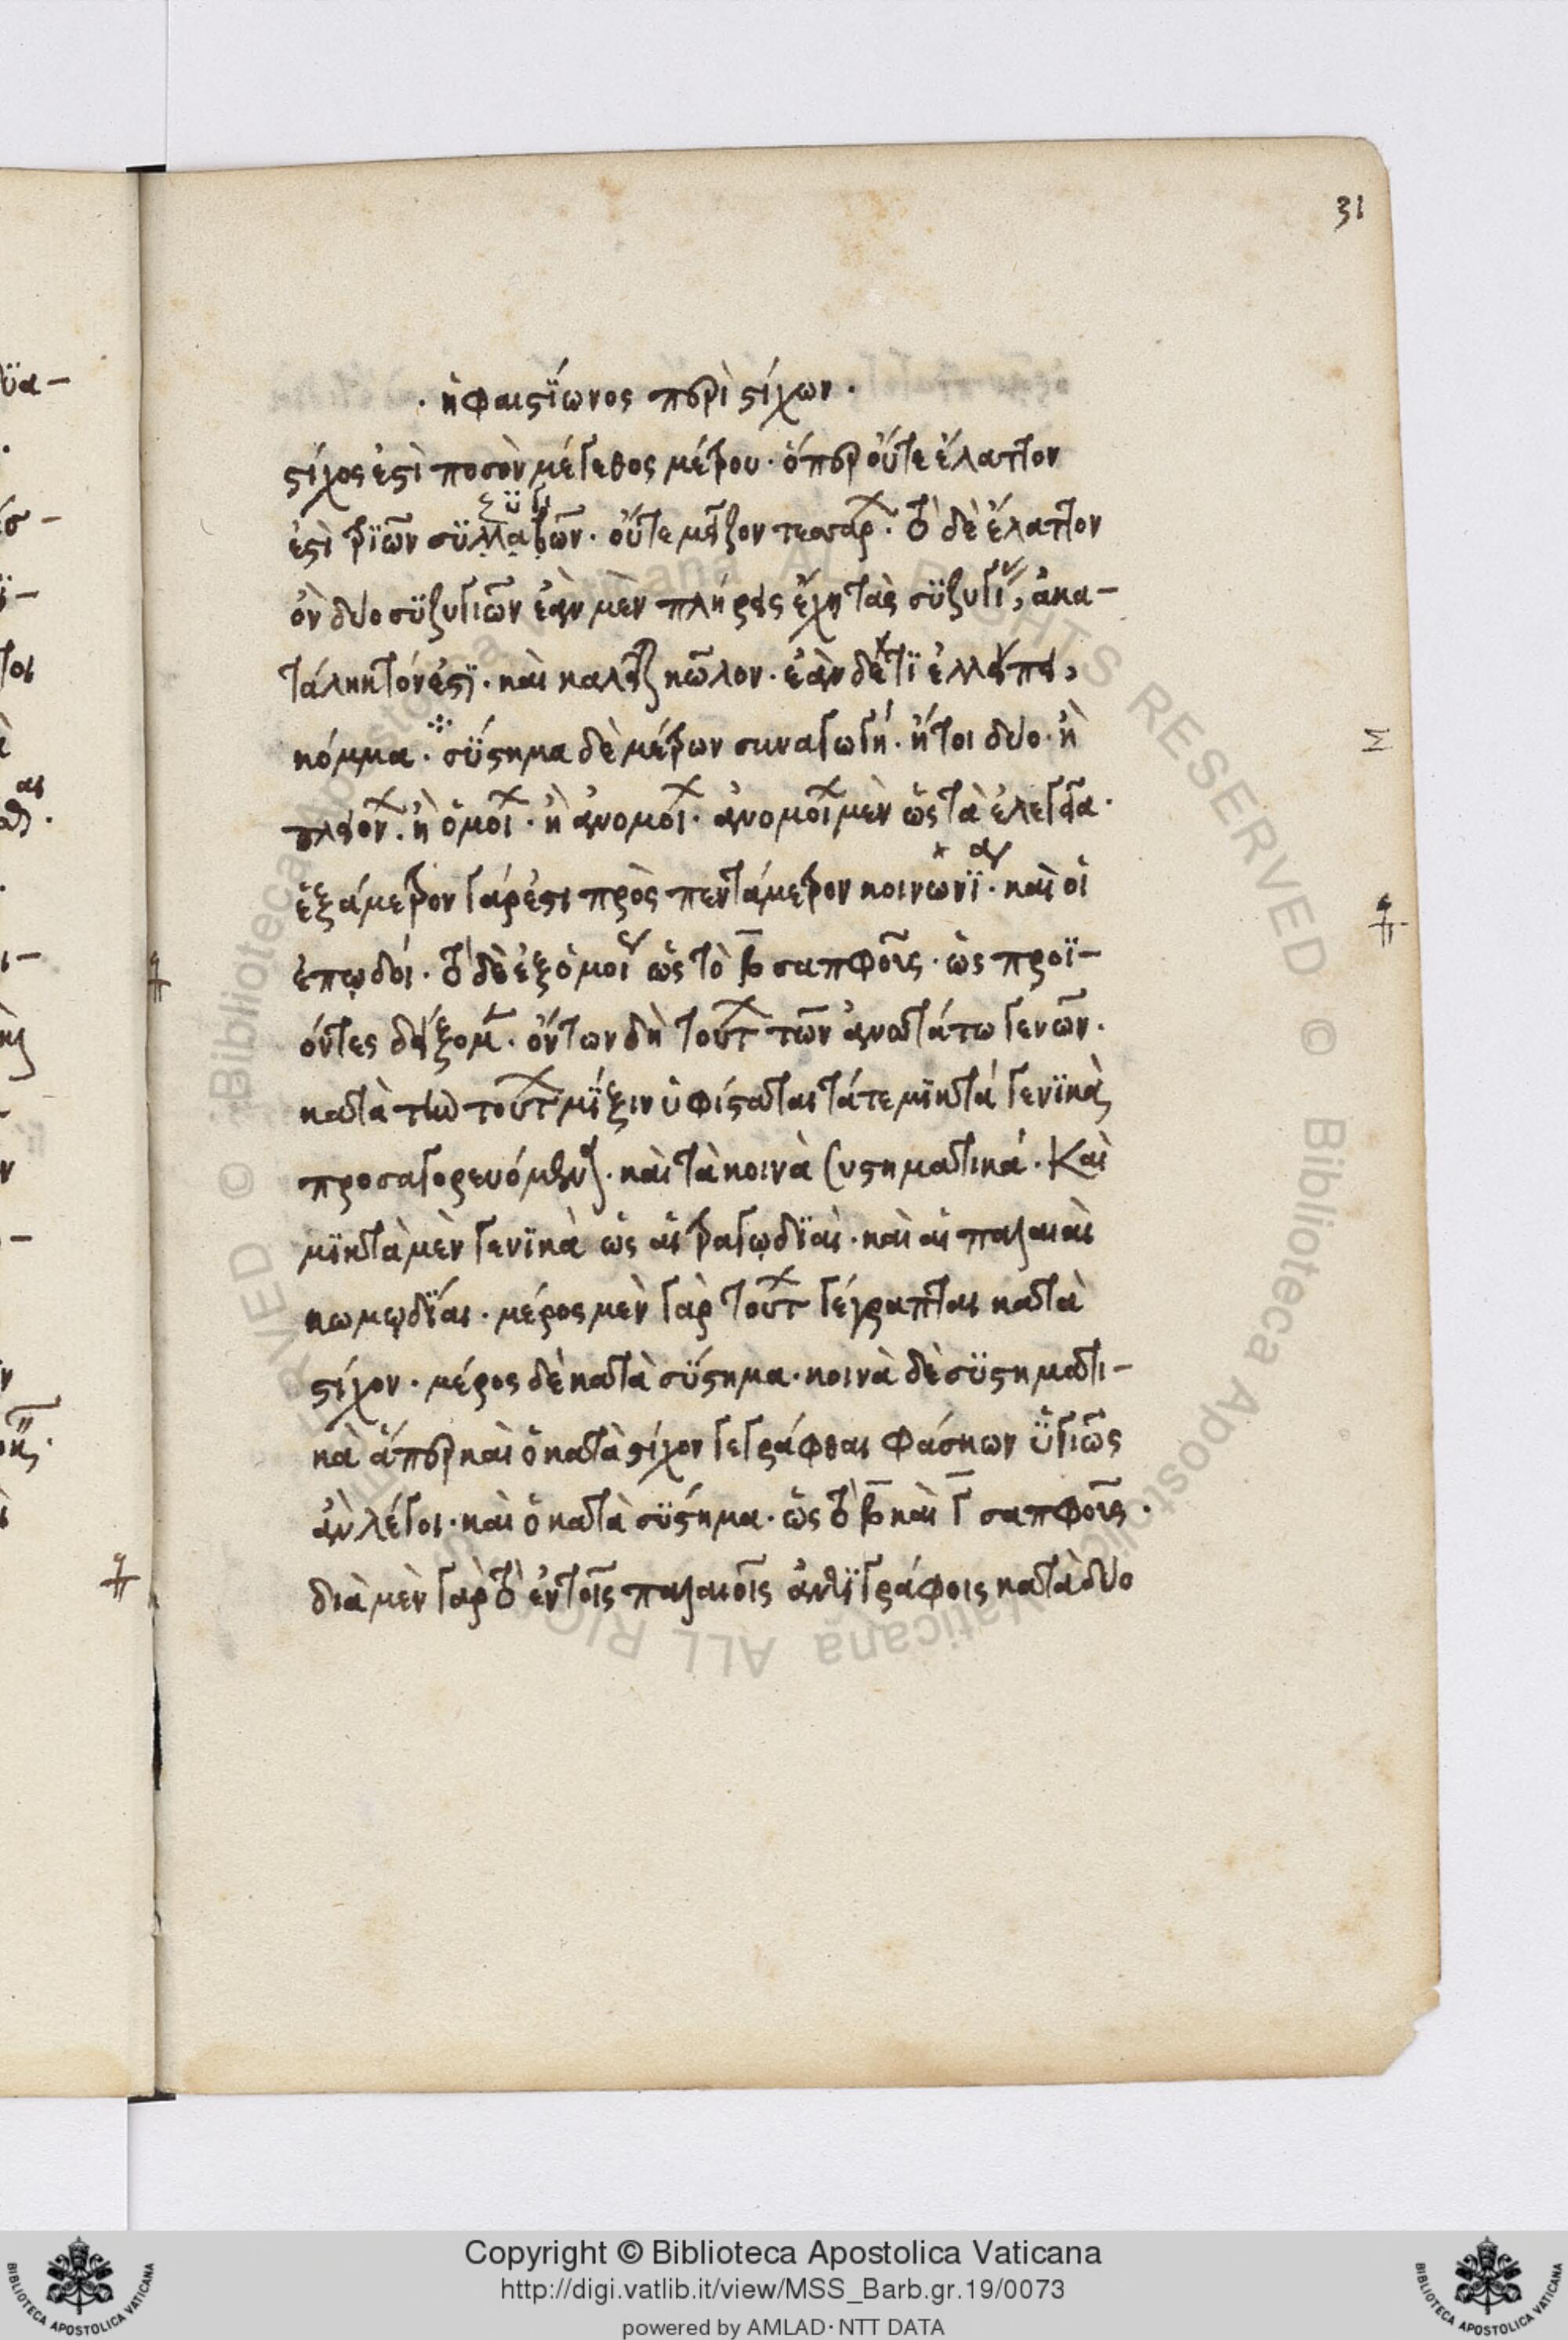 31
· ἡφαιστΐωνος περὶ στίχων ·
στίχος ἐστὶ ποσὸν μέγεθος μέτρου · ὅπερ οὔτε ἔλαττον
ξϋγι
ἐστὶ τρϊῶν σϋλλαβῶν · οὔτε μεῖζον τεσσάρ · τὸ δὲ ἔλαττον
ὂν δύο σϋζυγιῶν ἐὰν μὲν πλήρεις ἔχῃ τὰς σϋζυγί, ἀκα-
τάληκτόν ἐστϊ · καὶ καλεῖται κῶλον · ἐὰν δέ τϊ ἐλλείπει,
κόμμα · σΰστημα δὲ μέτρων συναγωγή · ἤτοι δύο · ἢ
Σ
πλειόν · ἢ ὁμοί · ἢ ἀνομοί · ἀνομοί μὲν ὡς τὰ ἐλεγεῖα ·
ἑξάμετρον γάρ ἐστι πρὸς πεντάμετρον κοινωνϊ · καὶ οἱ
ἐπῳδοί · τὸ δὲ ἐξ ὁμοί ὡς τὸ β σαπφοῦς · ὡς προϊ-
όντες δείξομ · ὄντων δὴ τούτ τῶν ἀνωτάτω γενῶν ·
κατὰ τὴν τούτ μΐξιν ὑφίσταται τά τε μϊκτὰ γενϊκὰ
προσαγορευόμενα · καὶ τὰ κοινὰ συστηματικά · Καὶ
μϊκτὰ μὲν γενϊκὰ ὡς αἱ τραγῳδΐαι · καὶ αἱ παλαιαὶ
κωμῳδΐαι · μέρος μὲν γὰρ τούτ γέγραπται κατὰ
στίχον · μέρος δὲ κατὰ σΰστημα · κοινὰ δὲ σϋστηματι-
κὰ ἅπερ καὶ ὁ κατὰ στίχον γεγράφθαι φάσκων ὑγιῶς
ἂν λέγοι · καὶ ὁ κατὰ σΰστημα · ὡς τὸ β καὶ γ σαπφοῦς ·
διὰ μὲν γὰρ τὸ ἐν τοῖς παλαιοῖς ἀντϊγράφοις κατὰ δύο
Copyright © Biblioteca Apostolica Vaticana
http://digi.vatlib.it/view/MSS_Barb.gr.19/0073
powered by AMLAD · NTT DATA
BIBLIOTECA APOSTOLICA VATICANA
BIBLIOTECA APOSTOLICA VATICANA